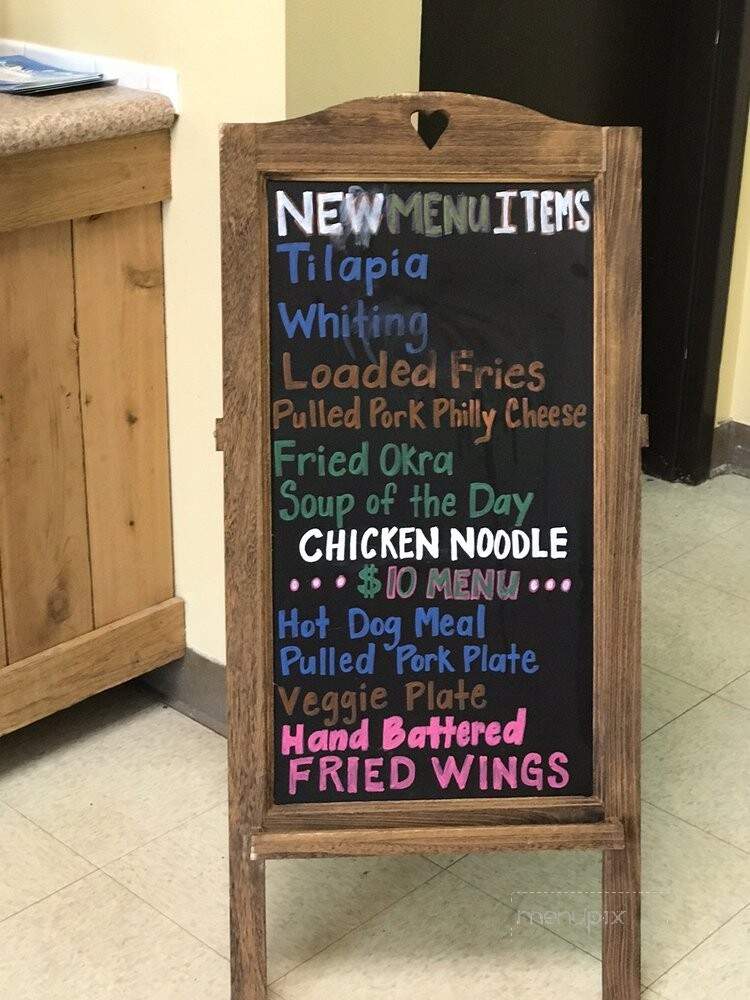 NEW MENU ITEMS
Tilapia
Whiting
Loaded Fries
Pulled Pork Philly Cheese
Fried Okra
Soup of the Day
CHICKEN NOODLE
••• $10 MENU •••
Hot Dog Meal
Pulled Pork Plate
Veggie Plate
Hand Battered
FRIED WINGS
menupix